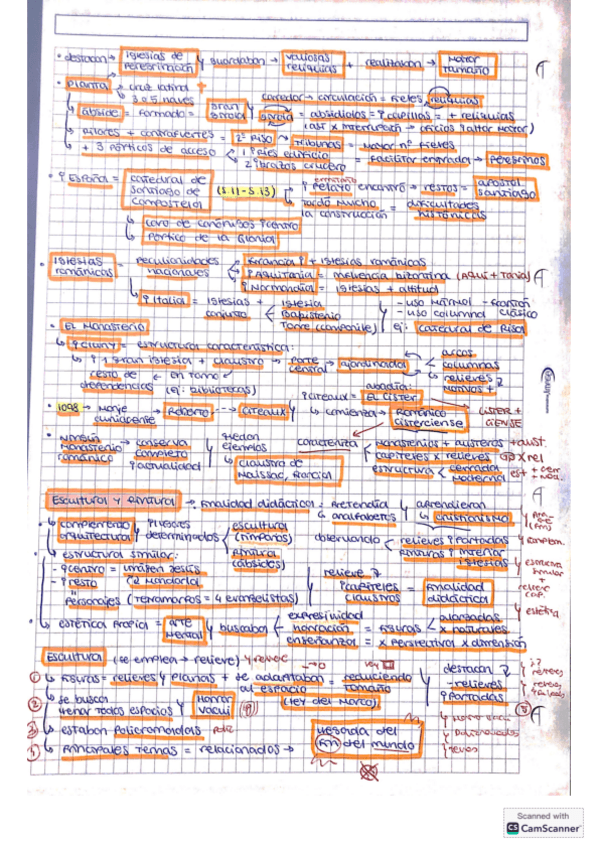 • destacan → iglesias de peregrinación y guardaban → valiosas reliquias + realizaban → mayor tamaño
• Planta → cruz latina
↳ 3 o 5 naves
corredor → circulación = fieles, reliquias
↳ ábside = formado = gran girola
girola = absidiolos = capillas = + reliquias
(así x interrupción → oficios 1 altar mayor)
↳ pilares + contrafuertes = 2º piso → tribunas = mayor nº fieles
↳ + 3 pórticos de acceso
1 pies edificio
2 brazos crucero
= facilitar entrada → peregrinos
• España = catedral de Santiago de Compostela (s.11 - s.13)
ermitaño
Pelayo encontró → restos = apóstol Santiago
tardó mucho la construcción = dificultades históricas
↳ coro de canónigos centro
↳ Pórtico de la Gloria
• Iglesias románicas = peculiaridades nacionales
Francia + iglesias románicas
Aquitania = influencia bizantina (Aqui + tania)
Normandía = iglesias + altitud
↳ Italia = iglesias + conjunto
iglesia
Baptisterio
Torre (campanile)
- uso mármol - frontón
- uso columna clásico
ej: catedral de Pisa
• El Monasterio
↳ Cluny = estructura característica:
↳ 1 gran iglesia + claustro → parte central → ajardinada
arcos
columnas
relieves
motivos +
cesto de dependencias ← en torno
(ej: bibliotecas)
abadía:
Citeaux = El Císter
• 1098 → monje cluniacense → Roberto ---> Citeaux
↳ comienza → Románico cisterciense
CÍSTER + CIENSE
• Ningún monasterio románico → conserva completo actualidad
quedan ejemplos
↳ claustro de Moissac, Francia
caracteriza
monasterios + austeros + aust.
capiteles x relieves
estructura cerrada
Escultura y pintura → finalidad didáctica: pretendía analfabetos y aprendieran cristianismo
• ↳ complemento arquitectura
y lugares determinados
escultura (tímpanos)
pintura (ábsides)
observando
relieves portadas
pinturas interior iglesias
• ↳ estructura similar:
- centro = imagen Jesús (mandorla)
- resto = personajes (Tetramorfos = 4 evangelistas)
relieve
capiteles
claustros
= finalidad didáctica
• ↳ estética propia = arte mental y buscaba
expresividad
narración
enseñanza
= figuras
alargadas
x naturales
= x perspectiva x dimensión
Escultura (se emplea → relieve)
① figuras = relieves y planas + se adaptaban al espacio = reduciendo tamaño (ley del marco)
destacan
- relieves
portadas
② se busca llenar todos espacios y horror vacui
③ estaban policromadas
④ principales temas = relacionados → llegada del fin del mundo
Scanned with
CS CamScanner